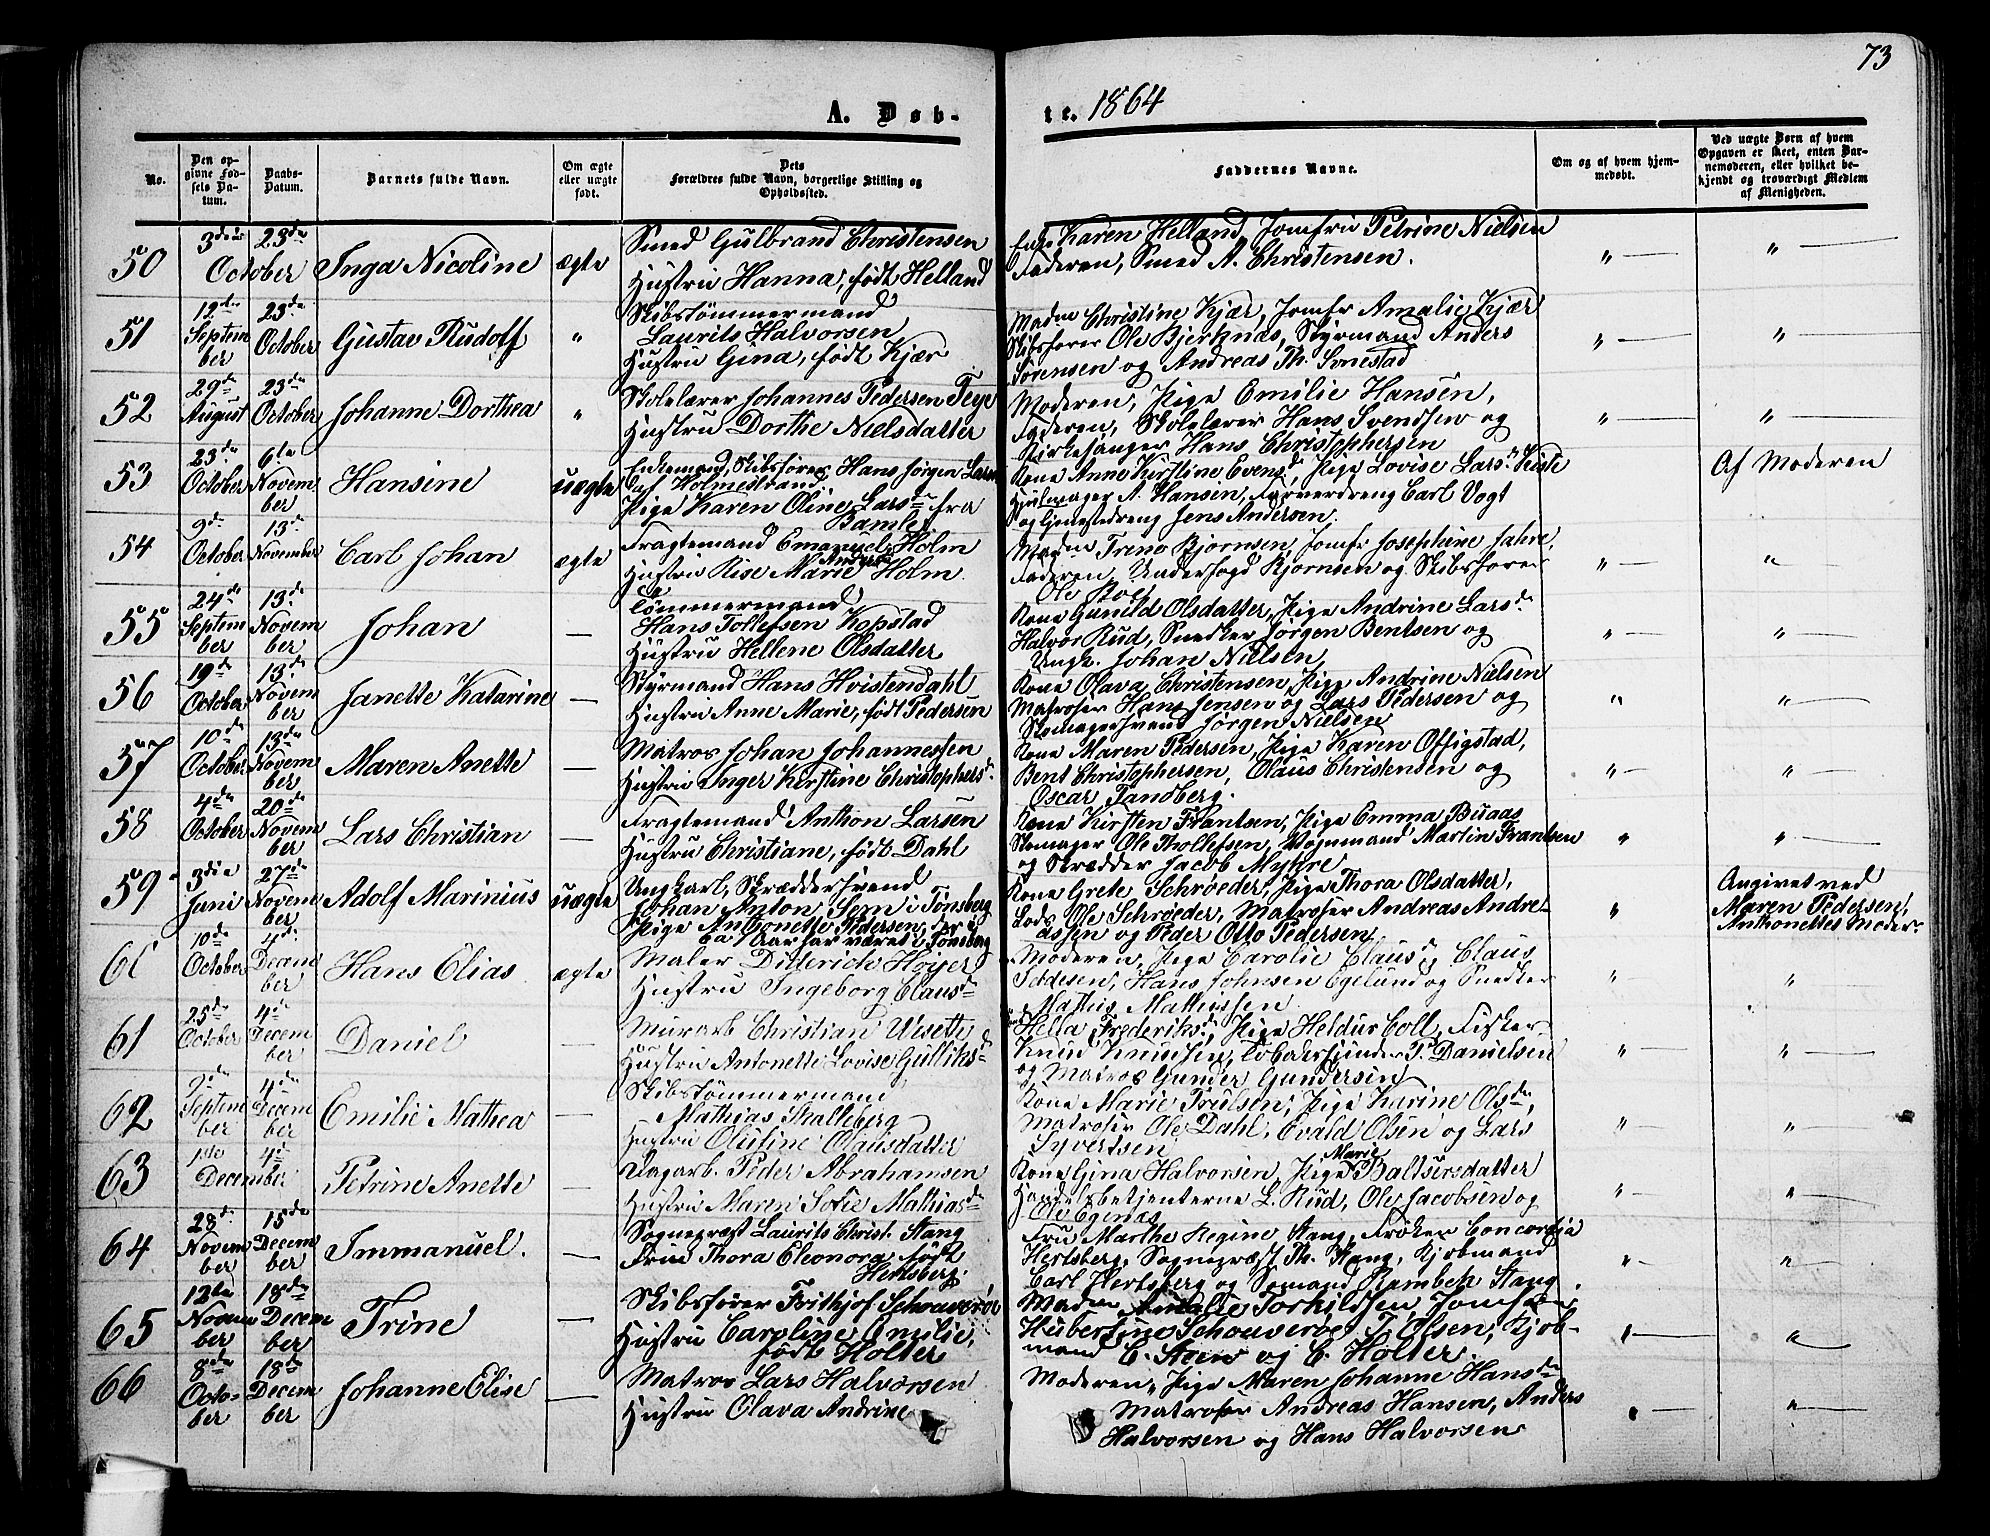 73
A. Døb-
te. 1864
No.
Den op-
givne Fød-
sels Da-
tum.
Daabs-
Datum.
Barnets fulde Navn.
Om ægte
eller uægte
født.
Dets
Forældres fulde Navn, borgerlige Stilling og
Opholdssted.
Faddernes Navne.
Om og af hvem hjem-
medøbt.
Ved uægte Børn af hvem
Opgaven er skeet, enten Bar-
nemoderen, eller hvilket be-
kjendt og troværdigt Medlem
af Menigheden.
50
3die 23de
October
Inga Nicoline
ægte
Smed Gulbrand Christensen
Hustru Hanna, født Helland
Enke Karen Helland, Jomfru Petrine Nielsen
Faderen, Smed A. Christensen.
" —
" —
51
12te
Septem
ber
23de
October
Gustav Rudolf
"
Skibstømmermand
Laurits Halvorsen
Hustru Gina, født Kjær
Madm Christine Kjær, Jomfr Amalie Kjær
Skibsfører Ole Bjerknæs, Styrmand Anders
Sørensen og Andreas Th.
" —
" —
52
29de
August
23de
October
Johanne Dorthea
"
Skolelærer Johannes Pedersen Teye
Hustru Dorthe Nielsdatter
Moderen, Pige Emilie Hansen,
Faderen, Skolelærer Hans Svendsen og
Kirkesanger Hans Christophersen
" —
" —
53
23de
October
6te
Novem
ber
Hansine
uægte
Enkemand, Skibsfører Hans Jørgen Larsen
af Holmestrand
Pige Karen Oline Larsdr fra
Bamle
Kone Anne Kirstine Evensd, Pige Lovise Larsd
Hjulmager A. Hansen, Farverdreng Carl Vogt
og Tjenestedreng Jens Andersen.
Af Moderen
54
9de
October
13de
November
Carl Johan
ægte
Fragtemand Emanuel Holm
Hustru Rise Marie Holm
Madm Bjørnsen, Jomfr Josephine Jahre,
Faderen, Underfogd Bjørnsen og Skibsfører
Ole
" —
" —
55
24de
Septem
ber
13de
Novem
ber
Johan
—
Tømmermand
Hans Tollefsen Kopstad
Hustru Hellene Olsdatter
Kone Gunild Olsdatter, Pige Andrine Larsdr
Halvor Rud, Snedker Jørgen Bentsen og
Ungk. Johan Nielsen
" —
" —
56
19de
October
13de
Novem
ber
Janette Katarine
—
Styrmand Hans Hvistendahl
Hustru Anne Marie, født Pedersen
Kone Olava Christensen, Pige Andrine Nielsen
Matroser Hans Jensen og Lars Pedersen og
Skomagersvend Jørgen Nielsen
"
" —
57
10de
October
13de
Novem
ber
Maren Anette
—
Matros Johan Johannessen
Hustru Inger Kirstine Christophersd.
Kone Maren Pedersen, Pige Karen Offigstad,
Bent Christophersen, Olaus Christensen og
Oscar Tandberg.
" —
" —
58
4de
October
20de
Novem
ber
Lars Christian
—
Fragtemand Anthon Larsen
Hustru Christiane, født Dahl
Kone Kirsten Frantsen, Pige Emma Buaas
Skomager Ole Thollefsen, Vognmand Martin Frantsen
og Skrædder Jacob Myhre
"
" —
59
3die
Juni
27de
Novem
ber
Adolf Marinius
uægte
Ungkarl, Skræddersvend
Johan Anton Sem i Tønsberg
Pige Anthonette Pedersen, der i
ca 1 Aar har været i Tønsberg
Kone Grete Schrøeder, Pige Thora Olsdatter,
Lods Ole Schrøeder, Matroser Andreas Andre-
assen og Peder Otto Pedersen
"
Angivet ved
Maren Pedersen,
Anthonettes Moder
60
10de
October
4de
Decem
ber
Hans Elias
ægte
Maler Ditterich Høijer
Hustru Ingeborg Clausdr
Moderen, Pige Carolie Clausd, Claus
Hans Johnsen Egelund og Snedker
Mathis Mathissen
"
"
61
25de
October
4de
Decem
ber
Daniel
—
Murarb Christian Wisette
Hustru Antonette Lovise Gulliksd
Hella Frederiksd, Pige Heldur Coll, Fisker
Knud Knudsen, P. Danielsen
og Matros Gunder Gundersen
" —
" —
62
9de
Septem
ber
4de
Decem
ber
Emilie Mathea
—
Skibstømmermand
Mathias Stalleberg
Hustru Olufine Olausdatter
Kone Marie Trulsen, Pige Karine Olsdr,
Matroser Ole Dahl, Evald Olsen og Lars
Syvertsen
" —
" —
63
1ste 4de
December
Petrine Anette
—
Dagarb. Peder Abrahamsen
Hustru Maren Sofie Mathiasdr
Kone Gina Halvorsen, Pige Marie Baltsersdatter
Handelsbetjenterne L. Rud, Ole Jacobsen og
Ole Egenæs
" —
" —
64
28de
Novem
ber
15de
Decem
ber
Immanuel.
—
Sogneprest Laurits Christ. Stang
Frue Thora Eleonora, født
Hertsberg.
Fru Marthe Regine Stang, Frøken Concordia
Hertsberg, Sogneprest Th. Stang, Kjøbmand
Carl Hertsberg og Sømand Rambeh Stang.
" —
" —
65
12te
Novem
ber
18de
Decem
ber
Trine
—
Skibsfører Frithjof Schouverøe
Hustru Caroline Emilie,
født Holter
Madm Amalie Torkildsen, Jomfruen
Hubertine Schouverøe, T. Olsen, Kjøb-
mand C. Steen og C. Holter.
" —
"
66
8de
Octo-
ber
18de
Decem
ber
Johanne Elise
—
Matros Lars Halvorsen
Hustru Olava Andrine
Moderen, Pige Maren Johanne Hansdr
Matroser Andreas Hansen, Anders
Halvorsen og Hans Halvorsen
" —
" —